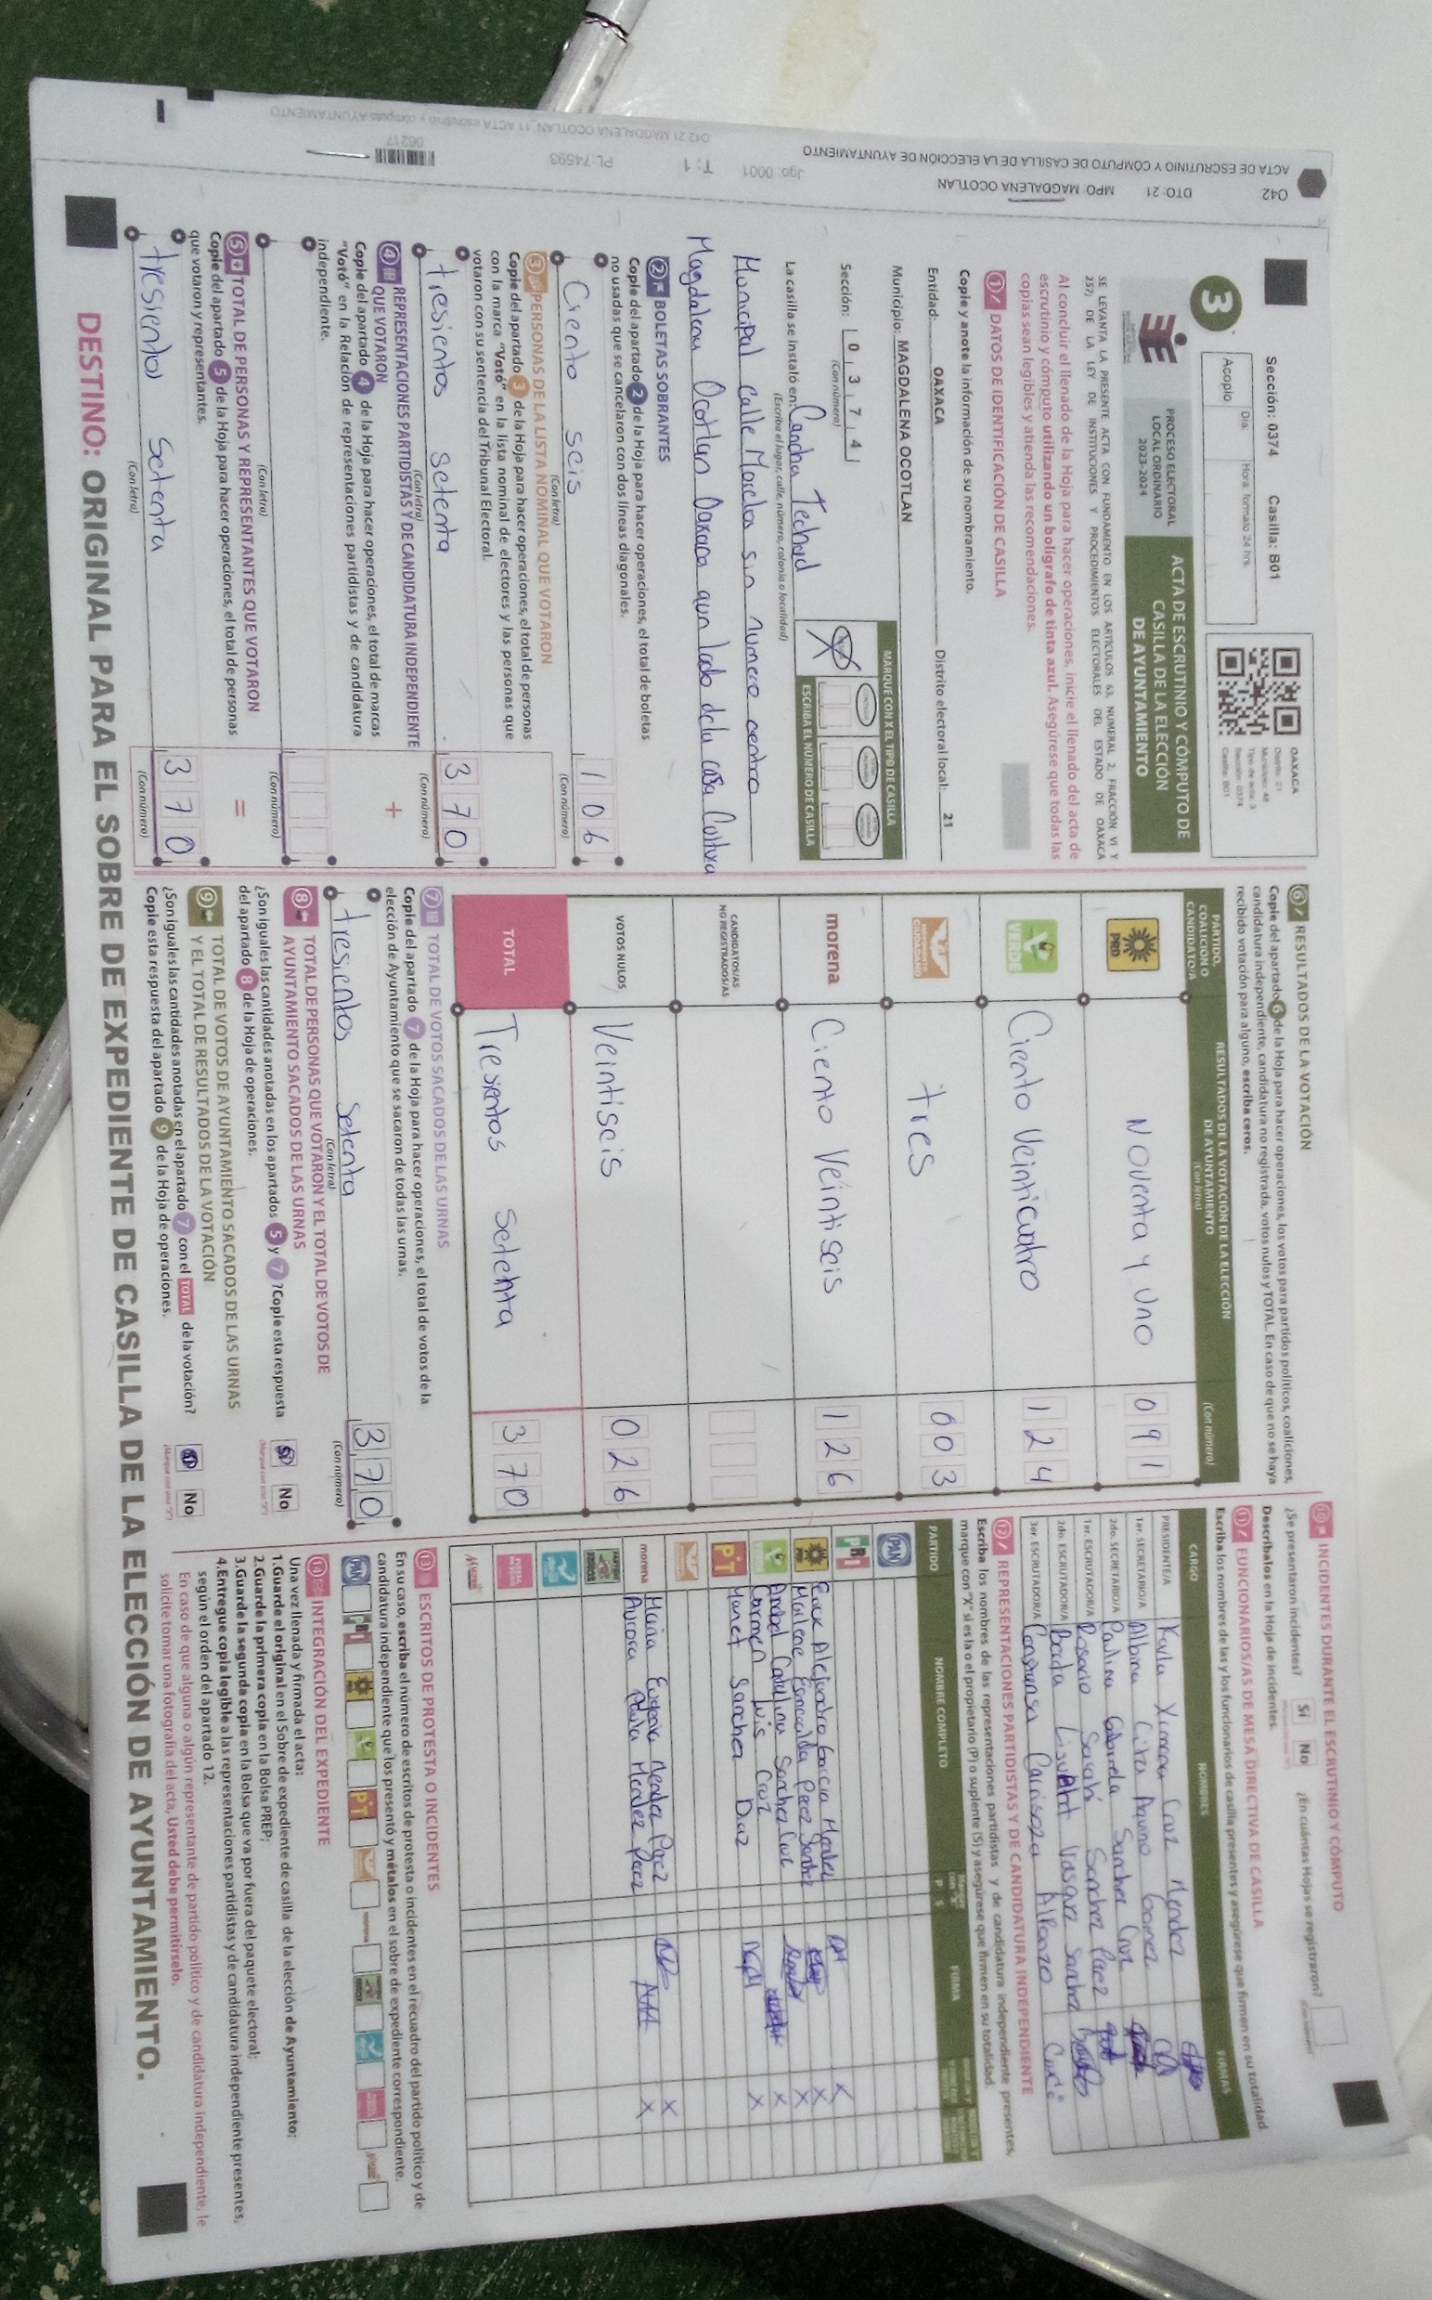 042 DTO: 21 MPO: MAGDALENA OCOTLAN
ACTA DE ESCRUTINIO Y CÓMPUTO DE CASILLA DE LA ELECCIÓN DE AYUNTAMIENTO
Jgo: 0001 T: 1 PL: 74593
06217
042 21 MAGDALENA OCOTLAN_11 ACTA escrutinio y computo AYUNTAMIENTO
Sección: 0374 Casilla: B01
3
Día: Hora: formato 24 hrs.
Acopio
OAXACA
Distrito: 21
Sección: 0374
Casilla: B01
PROCESO ELECTORAL
LOCAL ORDINARIO
2023-2024
ACTA DE ESCRUTINIO Y CÓMPUTO DE
CASILLA DE LA ELECCIÓN
DE AYUNTAMIENTO
SE LEVANTA LA PRESENTE ACTA CON FUNDAMENTO EN LOS ARTÍCULOS 63, NUMERAL 2, FRACCIÓN VI Y
237; DE LA LEY DE INSTITUCIONES Y PROCEDIMIENTOS ELECTORALES DEL ESTADO DE OAXACA
Al concluir el llenado de la Hoja para hacer operaciones, inicie el llenado del acta de
escrutinio y cómputo utilizando un bolígrafo de tinta azul. Asegúrese que todas las
copias sean legibles y atienda las recomendaciones.
1 DATOS DE IDENTIFICACIÓN DE CASILLA
Copie y anote la información de su nombramiento.
Entidad: OAXACA Distrito electoral local: 21
Municipio: MAGDALENA OCOTLAN
Sección: 0 3 7 4
(Con número)
MARQUE CON X EL TIPO DE CASILLA
ESCRIBA EL NÚMERO DE CASILLA
La casilla se instaló en: Cancha Techad
(Escriba el lugar, calle, número, colonia o localidad)
Municipal calle Morelos sin numero centro
Magdalena Ocotlan Oaxaca aun lado dela casa Cultura
2 BOLETAS SOBRANTES
Copie del apartado 2 de la Hoja para hacer operaciones, el total de boletas
no usadas que se cancelaron con dos líneas diagonales.
Ciento seis 106
(Con letra) (Con número)
3 PERSONAS DE LA LISTA NOMINAL QUE VOTARON
Copie del apartado 3 de la Hoja para hacer operaciones, el total de personas
con la marca "Votó" en la lista nominal de electores y las personas que
votaron con su sentencia del Tribunal Electoral.
tresientos setenta 370
(Con letra) (Con número)
4 REPRESENTACIONES PARTIDISTAS Y DE CANDIDATURA INDEPENDIENTE
QUE VOTARON
Copie del apartado 4 de la Hoja para hacer operaciones, el total de marcas
"Votó" en la Relación de representaciones partidistas y de candidatura
independiente.
+
(Con letra) (Con número)
5 TOTAL DE PERSONAS Y REPRESENTANTES QUE VOTARON
Copie del apartado 5 de la Hoja para hacer operaciones, el total de personas
que votaron y representantes.
=
tresientos setenta 370
(Con letra) (Con número)
6 RESULTADOS DE LA VOTACIÓN
Copie del apartado 6 de la Hoja para hacer operaciones, los votos para partidos políticos, coaliciones,
candidatura independiente, candidatura no registrada, votos nulos y TOTAL. En caso de que no se haya
recibido votación para alguno, escriba ceros.
PARTIDO, COALICIÓN O CANDIDATO/A
RESULTADOS DE LA VOTACIÓN DE LA ELECCIÓN
DE AYUNTAMIENTO
(Con letra) (Con número)
PRD Noventa y uno 091
VERDE Ciento Veinticuatro 124
MOVIMIENTO CIUDADANO tres 003
morena Ciento Veintiseis 126
CANDIDATOS/AS NO REGISTRADOS/AS
VOTOS NULOS Veintiseis 026
TOTAL Tresientos setenta 370
7 TOTAL DE VOTOS SACADOS DE LAS URNAS
Copie del apartado 7 de la Hoja para hacer operaciones, el total de votos de la
elección de Ayuntamiento que se sacaron de todas las urnas.
tresientos setenta 370
(Con letra) (Con número)
8 TOTAL DE PERSONAS QUE VOTARON Y EL TOTAL DE VOTOS DE
AYUNTAMIENTO SACADOS DE LAS URNAS
¿Son iguales las cantidades anotadas en los apartados 5 y 7? Copie esta respuesta
del apartado 8 de la Hoja de operaciones.
Sí No
9 TOTAL DE VOTOS DE AYUNTAMIENTO SACADOS DE LAS URNAS
Y EL TOTAL DE RESULTADOS DE LA VOTACIÓN
¿Son iguales las cantidades anotadas en el apartado 7 con el TOTAL de la votación?
Copie esta respuesta del apartado 9 de la Hoja de operaciones.
No
10 INCIDENTES DURANTE EL ESCRUTINIO Y CÓMPUTO
¿Se presentaron incidentes? Sí No ¿En cuántas Hojas se registraron?
Descríbalos en la Hoja de incidentes.
11 FUNCIONARIOS/AS DE MESA DIRECTIVA DE CASILLA
Escriba los nombres de las y los funcionarios de casilla presentes y asegúrese que firmen en su totalidad.
CARGO NOMBRES FIRMAS
PRESIDENTE/A Karla Ximena Cruz Mendez
1er. SECRETARIO/A Albina
2do. SECRETARIO/A Paulina Gabriela Sanchez Cruz
1er. ESCRUTADOR/A Rosario Sarahi Sanchez Paez
2do. ESCRUTADOR/A Vasquez Sanchez
3er. ESCRUTADOR/A Constansa Carrisoza Alfonzo
12 REPRESENTACIONES PARTIDISTAS Y DE CANDIDATURA INDEPENDIENTE
Escriba los nombres de las representaciones partidistas y de candidatura independiente presentes,
marque con "X" si es la o el propietario (P) o suplente (S) y asegúrese que firmen en su totalidad.
PARTIDO NOMBRE COMPLETO P S FIRMA
PAN
PRI Alejandro Garcia Mendez X
X
PRD Marlene Esmeralda Perez Sanchez X
Anabel Sanchez Cruz X
VERDE Carmen Luis Cruz
PT Yanet Sanchez Diaz X
Maria Eugenia Mendez Paez X
morena Aurora Mendez Perez X
13 ESCRITOS DE PROTESTA O INCIDENTES
En su caso, escriba el número de escritos de protesta o incidentes en el recuadro del partido político y de
candidatura independiente que los presentó y métalos en el sobre de expediente correspondiente.
PAN PRI PT
14 INTEGRACIÓN DEL EXPEDIENTE
Una vez llenada y firmada el acta:
1. Guarde el original en el Sobre de expediente de casilla de la elección de Ayuntamiento;
2. Guarde la primera copia en la Bolsa PREP;
3. Guarde la segunda copia en la Bolsa que va por fuera del paquete electoral;
4. Entregue copia legible a las representaciones partidistas y de candidatura independiente presentes,
según el orden del apartado 12.
En caso de que alguna o algún representante de partido político y de candidatura independiente, le
solicite tomar una fotografía del acta, Usted debe permitírselo.
DESTINO: ORIGINAL PARA EL SOBRE DE EXPEDIENTE DE CASILLA DE LA ELECCIÓN DE AYUNTAMIENTO.